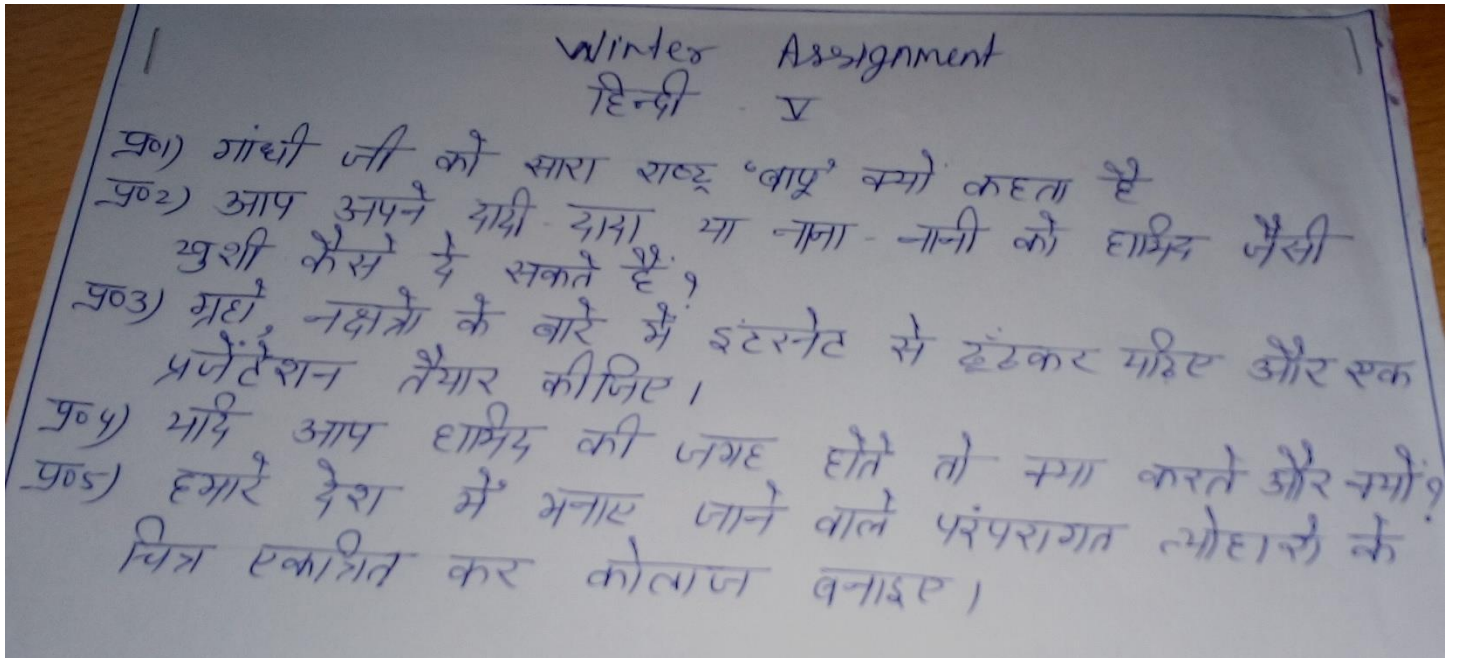 Winter Assignment
हिन्दी V
प्र०1) गांधी जी को सारा राष्ट्र 'बापू' क्यों कहता है
प्र०2) आप अपने दादी-दादा या नाना-नानी को हामिद जैसी
खुशी कैसे दे सकते हैं?
प्र०3) ग्रहो, नक्षत्रो के बारे में इंटरनेट से ढूंढकर पढ़िए और एक
प्रजेंटेशन तैयार कीजिए।
प्र०4) यदि आप हामिद की जगह होते तो क्या करते और क्यों?
प्र०5) हमारे देश में मनाए जाने वाले परंपरागत त्योहारो के
चित्र एकत्रित कर कोलाज बनाइए।